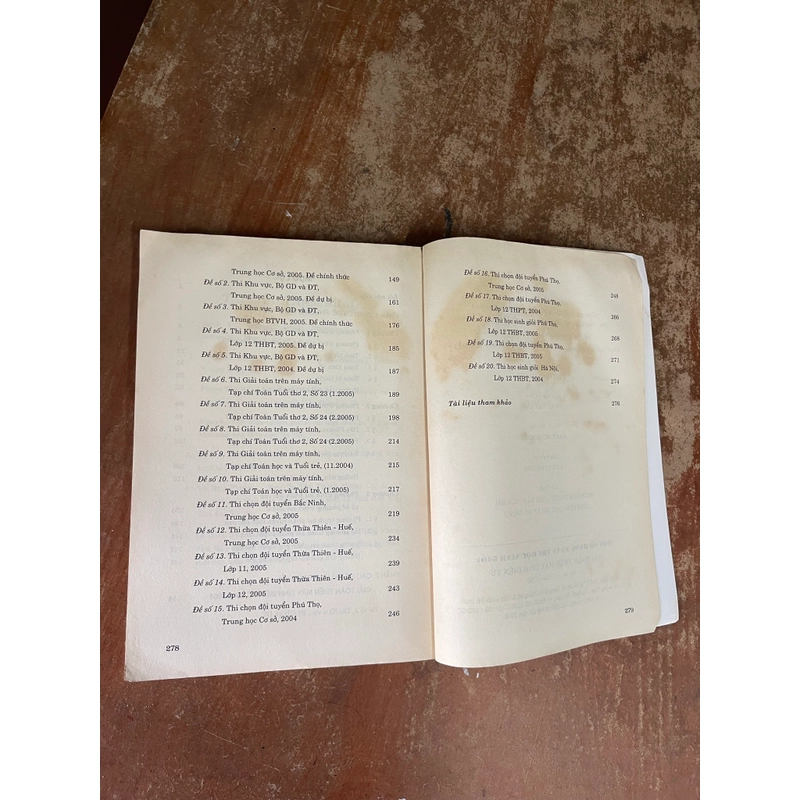 Trung học Cơ sở, 2005. Đề chính thức 149
Đề số 2. Thi Khu vực, Bộ GD và ĐT,
Trung học Cơ sở, 2005. Đề dự bị. 161
Đề số 3. Thi Khu vực, Bộ GD và ĐT,
Trung học BTVH, 2005. Đề chính thức 176
Đề số 4. Thi Khu vực, Bộ GD và ĐT,
Lớp 12 THBT, 2005. Đề dự bị 185
Đề số 5. Thi Khu vực, Bộ GD và ĐT,
Lớp 12 THBT, 2004. Đề dự bị 187
Đề số 6. Thi Giải toán trên máy tính,
Tạp chí Toán Tuổi thơ 2, Số 23 (1.2005) 189
Đề số 7. Thi Giải toán trên máy tính,
Tạp chí Toán Tuổi thơ 2, Số 24 (2.2005) 198
Đề số 8. Thi Giải toán trên máy tính,
Tạp chí Toán Tuổi thơ 2, Số 24 (2.2005) 214
Đề số 9. Thi Giải toán trên máy tính,
Tạp chí Toán học và Tuổi trẻ, (11.2004) 215
Đề số 10. Thi Giải toán trên máy tính,
Tạp chí Toán học và Tuổi trẻ, (1.2005) 217
Đề số 11. Thi chọn đội tuyển Bắc Ninh,
Trung học Cơ sở, 2005 219
Đề số 12. Thi chọn đội tuyển Thừa Thiên - Huế,
Trung học Cơ sở, 2005 221
Đề số 13. Thi chọn đội tuyển Thừa Thiên - Huế,
Lớp 11, 2005 239
Đề số 14. Thi chọn đội tuyển Thừa Thiên - Huế,
Lớp 12, 2005 243
Đề số 15. Thi chọn đội tuyển Phú Thọ,
Trung học Cơ sở, 2004 246
278
Đề số 16. Thi chọn đội tuyển Phú Thọ,
Trung học Cơ sở, 2005 248
Đề số 17. Thi chọn đội tuyển Phú Thọ,
Lớp 12 THPT, 2004 266
Đề số 18. Thi học sinh giỏi Phú Thọ,
Lớp 12 THBT, 2005 268
Đề số 19. Thi chọn đội tuyển Phú Thọ,
Lớp 12 THBT, 2005 271
Đề số 20. Thi học sinh giỏi Hà Nội,
Lớp 12 THBT, 2004 274
Tài liệu tham khảo 276
279